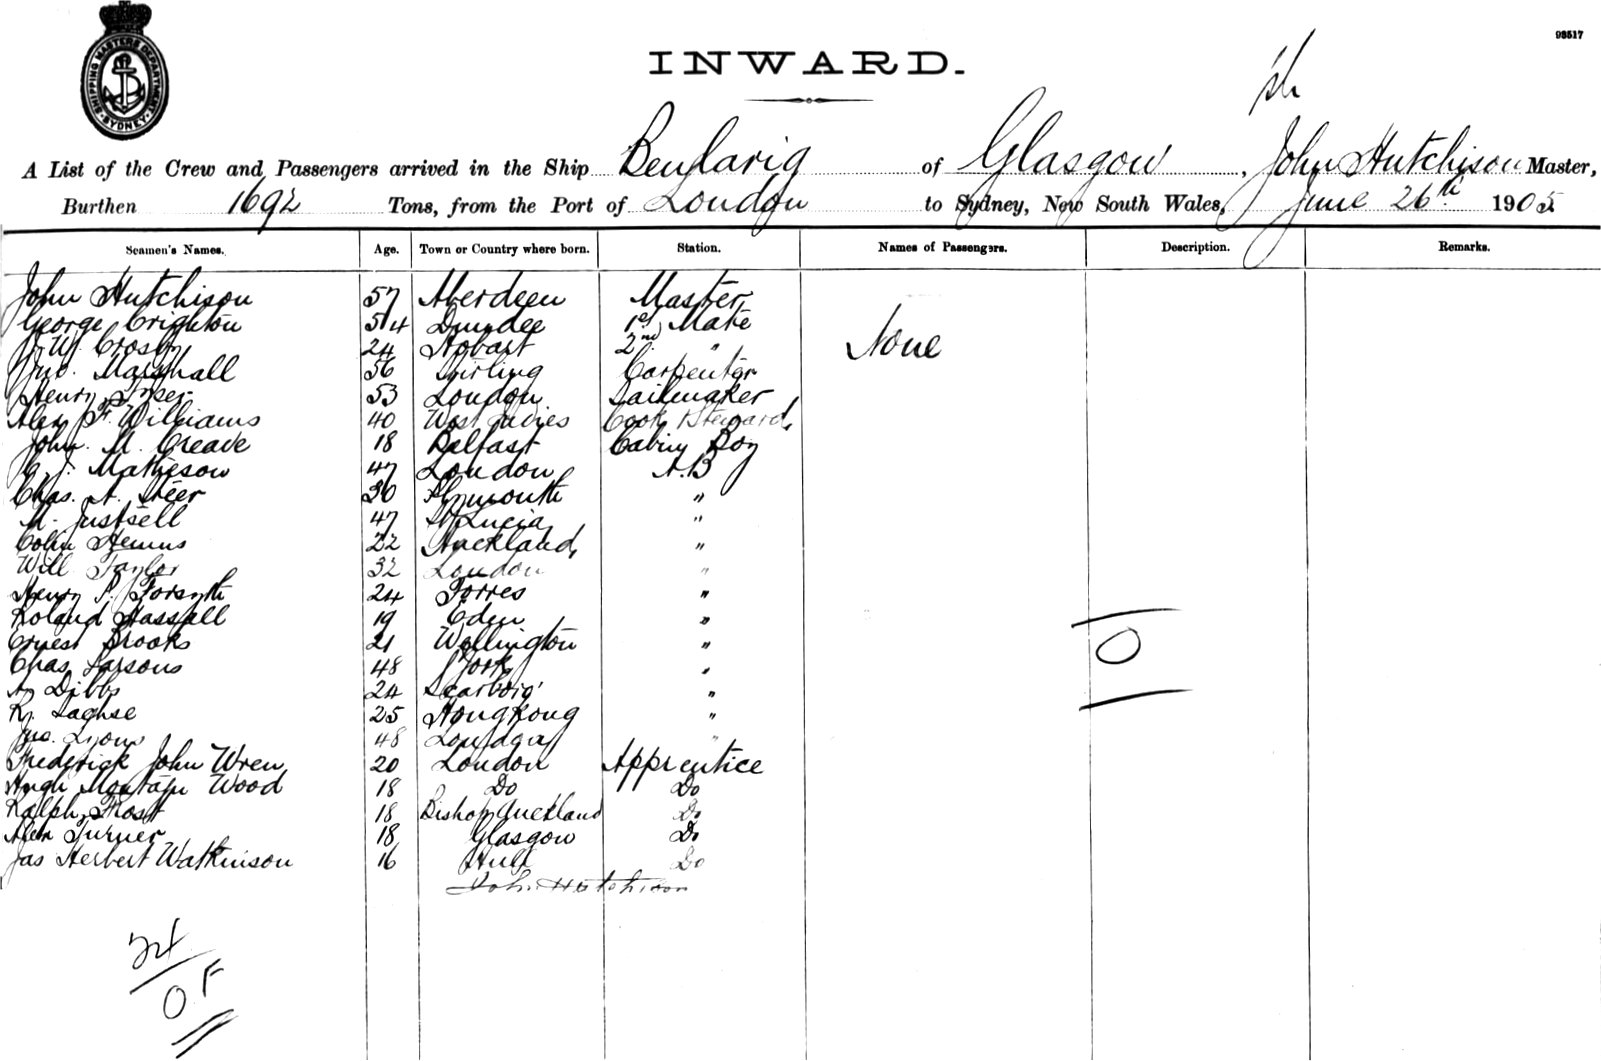 SHIPPING MASTERS DEPARTMENT SYDNEY
98517
INWARD.
A List of the Crew and Passengers arrived in the Ship Benlarig of Glasgow, John Hutchison Master,
Burthen 1692 Tons, from the Port of London to Sydney, New South Wales, June 26th 1905
Seamen's Names. Age. Town or Country where born. Station. Names of Passengers. Description. Remarks.
John Hutchison 57 Aberdeen Master
George Crighton 54 Dundee 1st Mate
W. Crosby 24 Hobart 2nd "
None
Jno. Marshall 56 Stirling Carpenter
Henry 53 London Sailmaker
Alex F. Williams 40 West Indies Cook & Steward
John M. Creave 18 Belfast Cabin Boy
G. J. Matheson 47 London A.B
Chas. A. Steer 30 Plymouth "
M. Justsell 47 St Lucia "
Colin Hemus 22 Auckland "
Will Taylor 32 London "
Henry P. Forsyth 24 Forres "
Roland Hassell 19 Eden "
Ernest Brooks 21 Wellington "
0
Chas Parsons 48 York "
A. Dibbs 24 Scarboro' "
R. 25 Hongkong "
Jno. Lyons 48 London "
Frederick John Wren 20 London Apprentice
Hugh Montagu Wood 18 Do Do
Ralph Frost 18 Bishop Auckland Do
Alex Turner 18 Glasgow Do
Jas Herbert Watkinson 16 Hull Do
John Hutchison
24
0